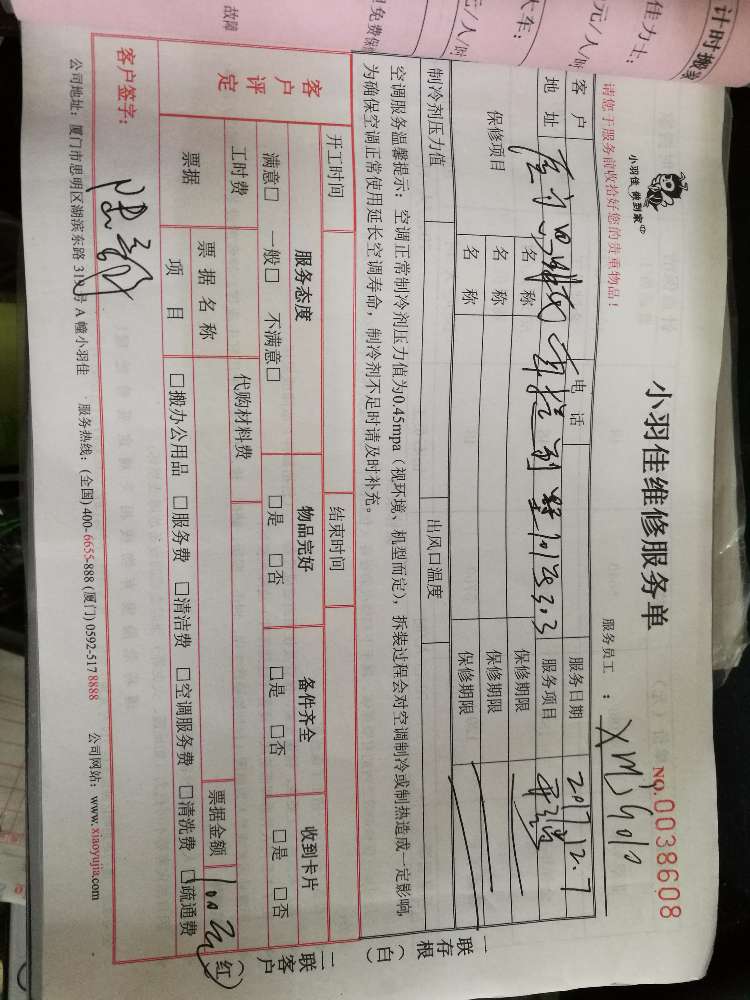 计时搬家
佳力士:
元/人/时
大车:
元/人/时
免费保
故障
请您于服务前收拾好您的贵重物品!
小羽佳 做到家
小羽佳维修服务单
服务员工 : XMJG010
NO.0038608
客户
电话
服务日期
2017.12.7
地址
服务项目
保修项目
名称
保修期限
名称
保修期限
名称
保修期限
制冷剂压力值
出风口温度
空调服务温馨提示: 空调正常制冷剂压力值为0.45mpa (视环境、机型而定), 拆装过程会对空调制冷或制热造成一定影响,
为确保空调正常使用延长空调寿命, 制冷剂不足时请及时补充。
一联存根(白)
二联客户(红)
开工时间
结束时间
客户评定
服务态度
物品完好
备件齐全
收到卡片
满意□ 一般□ 不满意□
□是 □否
□是 □否
□是 □否
工时费
代购材料费
票据
票据名称
票据金额
100元
项目
□搬办公用品 □服务费 □清洁费 □空调服务费 □清洗费 □疏通费
客户签字:
公司地址: 厦门市思明区湖滨东路 319号 A 幢小羽佳
服务热线: (全国) 400-6655-888 (厦门) 0592-5178888
公司网站: www.xiaoyujia.com